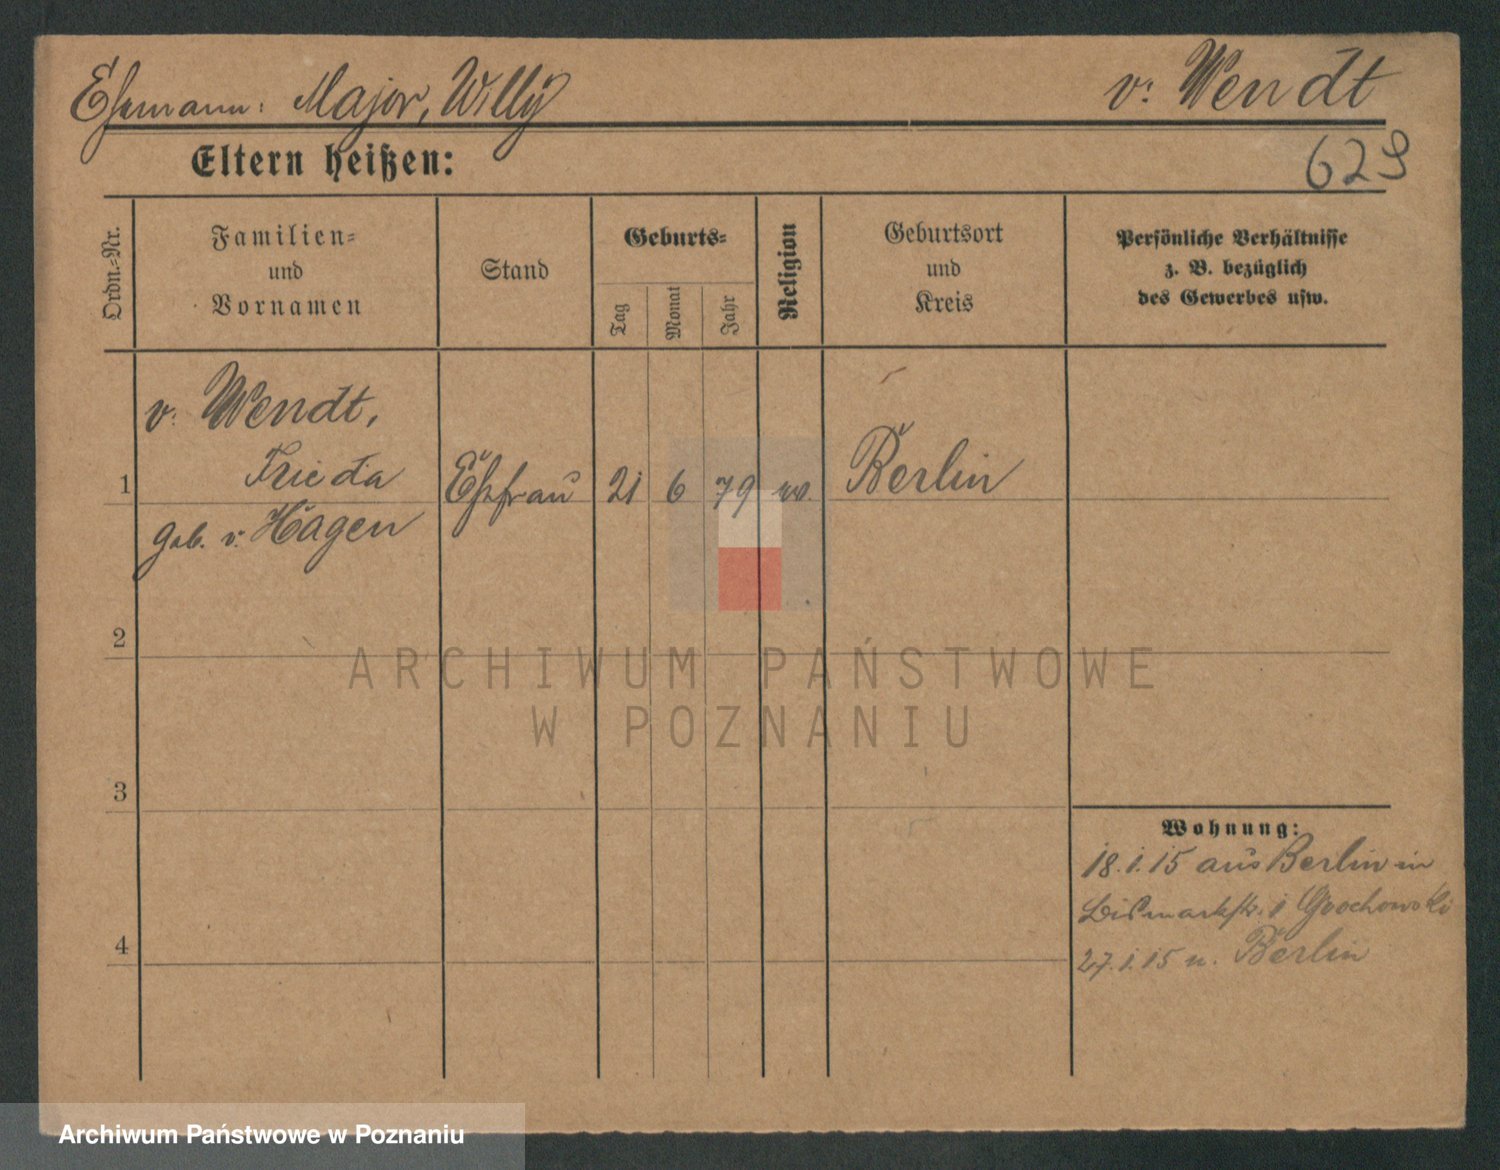 Ehemann: Major, Willy v. Wendt
Eltern heißen: 629
Ordn.=Nr.
Familien=
und
Vornamen
Stand
Geburts=
Tag
Monat
Jahr
Religion
Geburtsort
und
Kreis
Persönliche Verhältnisse
z. B. bezüglich
des Gewerbes usw.
v. Wendt,
1 Frieda Ehefrau 21 6 79 ev. Berlin
geb. v. Hagen
2
ARCHIWUM PAŃSTWOWE
W POZNANIU
3
Wohnung:
18.1.15 aus Berlin in
Bismarckstr. 1
4
27.1.15 n. Berlin
Archiwum Państwowe w Poznaniu